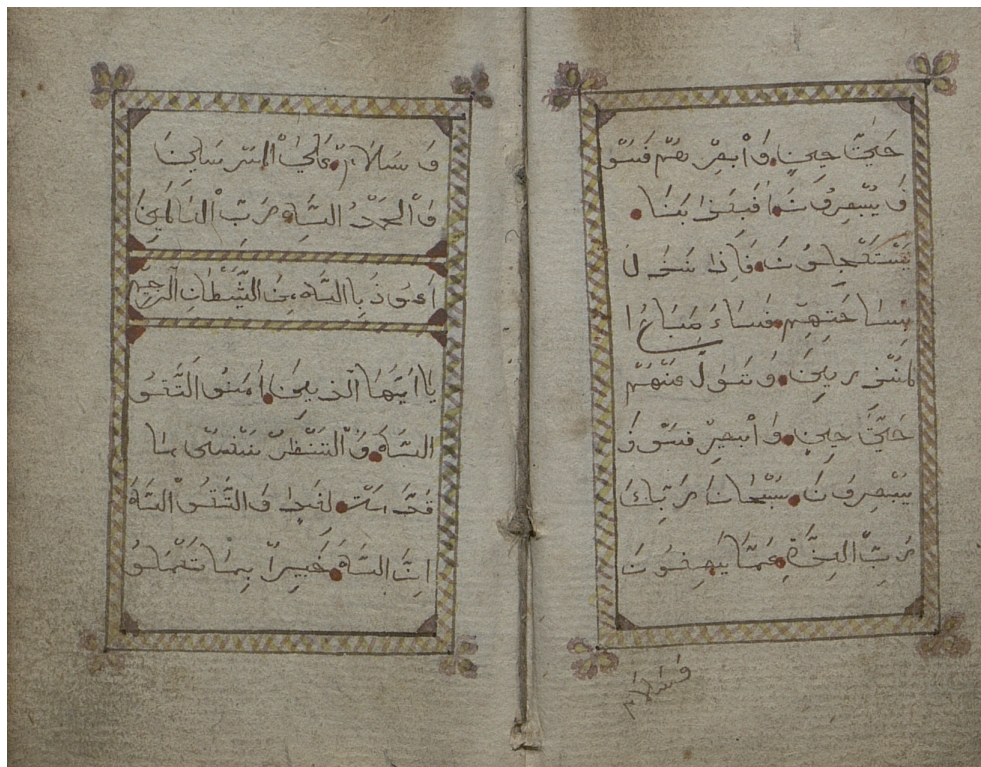 حَتَّىٰ حِينٍ وَأَبْصِرْهُمْ فَسَوْ
فَ يُبْصِرُونَ أَفَبِعَذَابِنَا
يَسْتَعْجِلُونَ فَاِذَا نَزَلَ
بِسَاحَتِهِمْ فَسَاءَ صَبَاحُ ا
لْمُنْذَرِينَ وَتَوَلَّ عَنْهُمْ
حَتَّىٰ حِينٍ وَأَبْصِرْ فَسَوْفَ
يُبْصِرُونَ سُبْحَانَ رَبِّكَ
رَبِّ الْعِزَّةِ عَمَّا يَصِفُونَ
وَسَلَامٌ
وَسَلَامٌ عَلَىٰ الْمُرْسَلِينَ
وَالْحَمْدُ اللّٰهِ رَبِّ الْعَالَمِينَ
اَعُوذُ بِااللّٰهِ مِنَ الشَّيْطَانِ الرَّجِيمِ
يَااَيُّهَا الَّذِينَ اٰمَنُو التَّقُو
اللّٰهَ وَالْتَنْظُرْ نَفْسٌ مَا
قَدَّمَتْ لِغَدٍ وَالتَّقُو اللّٰهَ
اِنَّ اللّٰهَ خَبِيرٌ بِمَا تَعْمَلُو